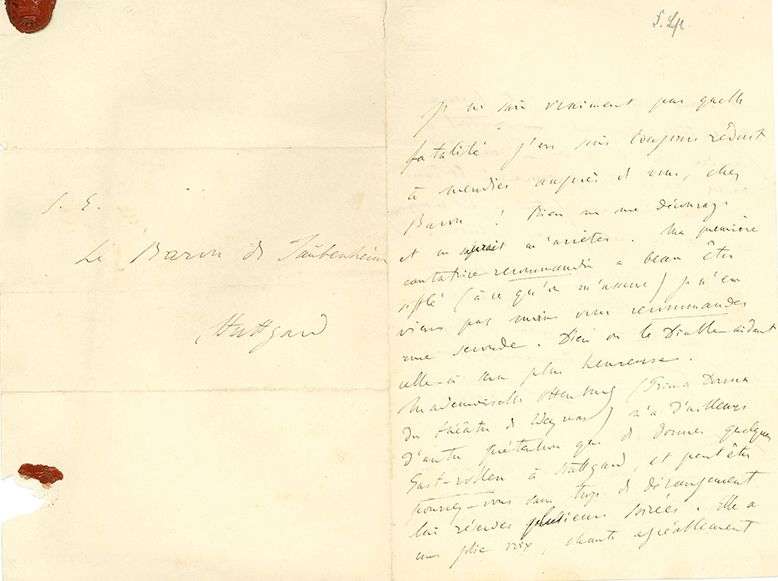 S. E.
Le Baron de Taubenheim
Stuttgard
Je ne sais vraiment par quelle
fatalité j'en suis toujours réduit
à mendier auprès de vous, cher
Baron ! Rien ne me décourage
et ne saurait m'arrêter. Ma première
cantatrice recommandée a beau être
sifflé (à ce qu'on m'assure) je n'en
viens pas moins vous recommander
une seconde. Dieu ou le Diable aidant
celle-ci sera plus heureuse.
Mademoiselle (Prima Donna
du théâtre de Weymar) n'a d'ailleurs
d'autre prétention que de donner quelques
Gast-rollen à Stuttgard, et peut être
pourrez-vous sans trop de dérangement
lui réserver plusieurs soirées. Elle a
une jolie voix, chante agréablement